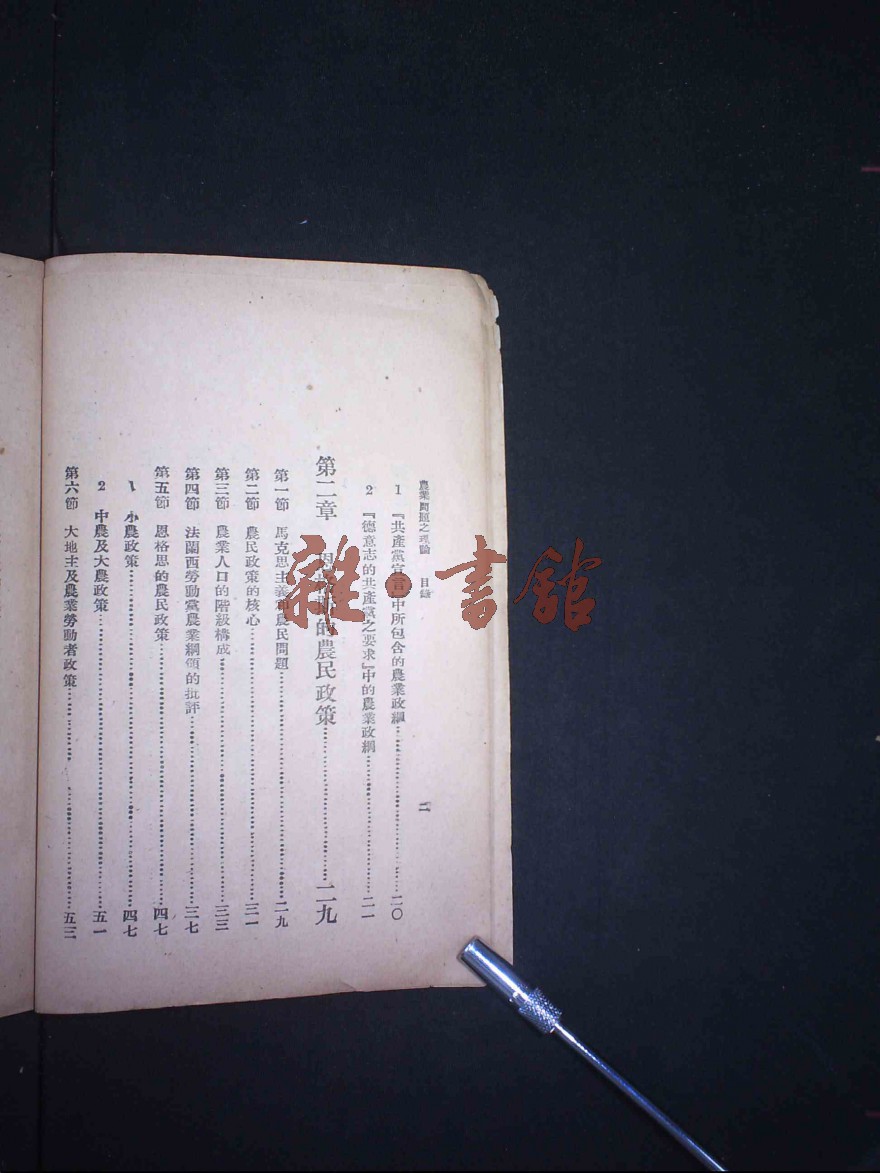 農業問題之理論 目錄 二
1 『共產黨宣言』中所包含的農業政綱……二〇
2 『德意志的共產黨之要求』中的農業政綱……二一
第二章 恩格斯的農民政策……二九
第一節 馬克思主義和農民問題……二九
第二節 農民政策的核心……三一
第三節 農業人口的階級構成……三三
第四節 法蘭西勞動黨農業綱領的批評……三七
第五節 恩格思的農民政策……四七
1 小農政策……四七
2 中農及大農政策……五一
第六節 大地主及農業勞動者政策……五三
雜·書館